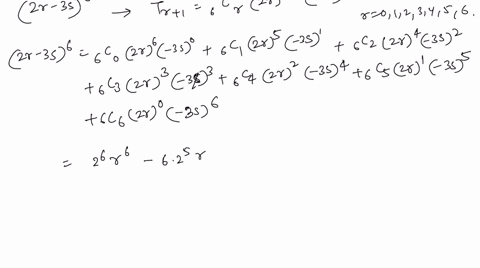 (2r-3s)⁶ → Tᵣ₊₁ = ₆Cᵣ (2r)
r=0,1,2,3,4,5,6.
(2r-3s)⁶ = ₆C₀ (2r)⁶(-3s)⁰ + ₆C₁ (2r)⁵(-3s)¹ + ₆C₂ (2r)⁴(-3s)²
+ ₆C₃ (2r)³(-3s)³ + ₆C₄ (2r)²(-3s)⁴ + ₆C₅ (2r)¹(-3s)⁵
+ ₆C₆ (2r)⁰(-3s)⁶
= 2⁶r⁶ - 6.2⁵ r